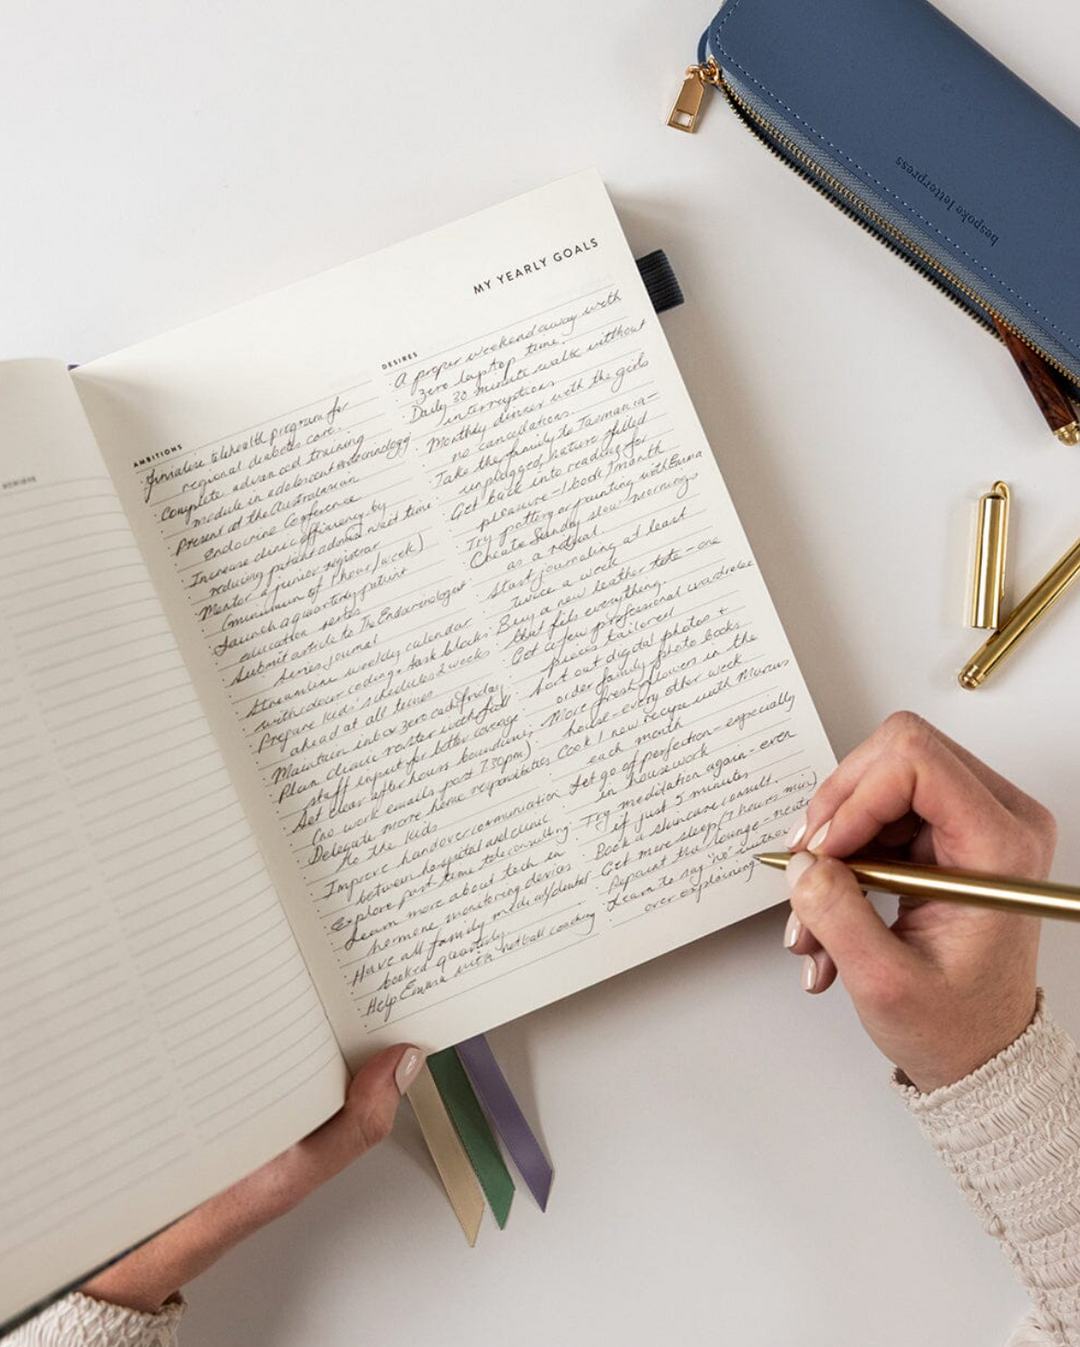 MY YEARLY GOALS
AMBITIONS
Finalise telehealth program for
regional diabetes care.
Complete advanced training
module in adolescent endocrinology
Present at the Australasian
Endocrine Conference
Increase clinic efficiency by
reducing patient admin wait time
Mentor a junior registrar
(minimum of 1 hour/week)
Launch a quarterly patient
education series
Submit article to The Endocrinologist
Series journal
Streamline weekly calendar
with colour coding + task blocks
Prepare kids' schedules 2 weeks
ahead at all times
Maintain inbox zero each Friday
Plan clinic roster with full
staff input for better coverage
Set clear after hours boundaries
(no work emails past 7:30pm)
Delegate more home responsibilities
to the kids
Improve handover communication
between hospital and clinic
Explore part-time teleconsulting
Learn more about tech in
hormone monitoring devices
Have all family medical/dental
booked quarterly
Help Emma with netball coaching
DESIRES
A proper weekend away with
zero laptop time.
Daily 30 minute walk without
interruptions
Monthly dinner with the girls
no cancellations.
Take the family to Tasmania-
unplugged, nature filled
Get back into reading for
pleasure-1 book/month
Try pottery or painting with Emma
Create Sunday slow mornings
as a ritual
Start journaling at least
twice a week
Buy a new leather tote-one
that fits everything.
Get a few professional wardrobe
pieces tailored
Sort out digital photos +
order family photo books
More fresh flowers in the
house-every other week
Cook 1 new recipe with Marcus
each month
Let go of perfection-especially
in housework
Try meditation again-even
if just 5 minutes
Book a skincare consult.
Get more sleep (7 hours min)
Repaint the lounge-
Learn to say "no" without
over explaining
bespoke letterpress